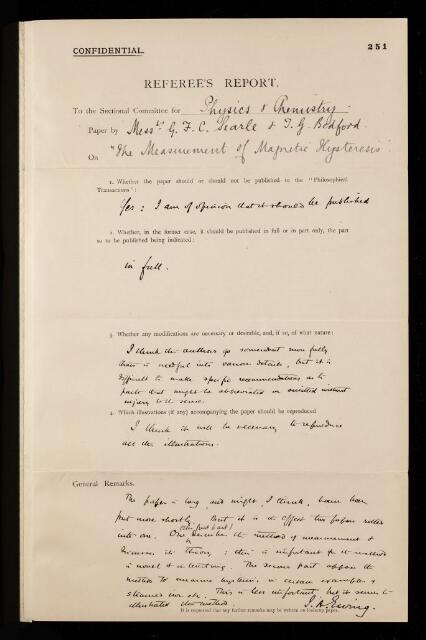 CONFIDENTIAL.
251
REFEREE'S REPORT.
To the Sectional Committee for Physics & Chemistry
Paper by Messrs G. F. C. Searle & T. G. Bedford.
On "The Measurement of Magnetic Hysteresis"
1. Whether the paper should or should not be published in the "Philosophical
Transactions":
Yes: I am of opinion that it should be published
2. Whether, in the former case, it should be published in full or in part only, the part
so to be published being indicated:
in full.
3. Whether any modifications are necessary or desirable, and, if so, of what nature:
I think the authors go somewhat more fully
than is needful into various details, but it is
difficult to make specific recommendations as to
parts that might be abbreviated or omitted without
injury to the sense.
4. Which illustrations (if any) accompanying the paper should be reproduced
I think it will be necessary to reproduce
all the illustrations.
General Remarks.
The paper is long and might, I think, have been
put more shortly. But it is in effect two papers rolled
into one. One (the first part) describes the method of measurement &
discusses its theory: this is important & the method
is novel & interesting. The second part applies the
method to measure hysteresis in certain examples of
strained iron etc. This is less important, but it serves to
illustrate the method.
J. A. Ewing.
It is requested that any further remarks may be written on foolscap paper.